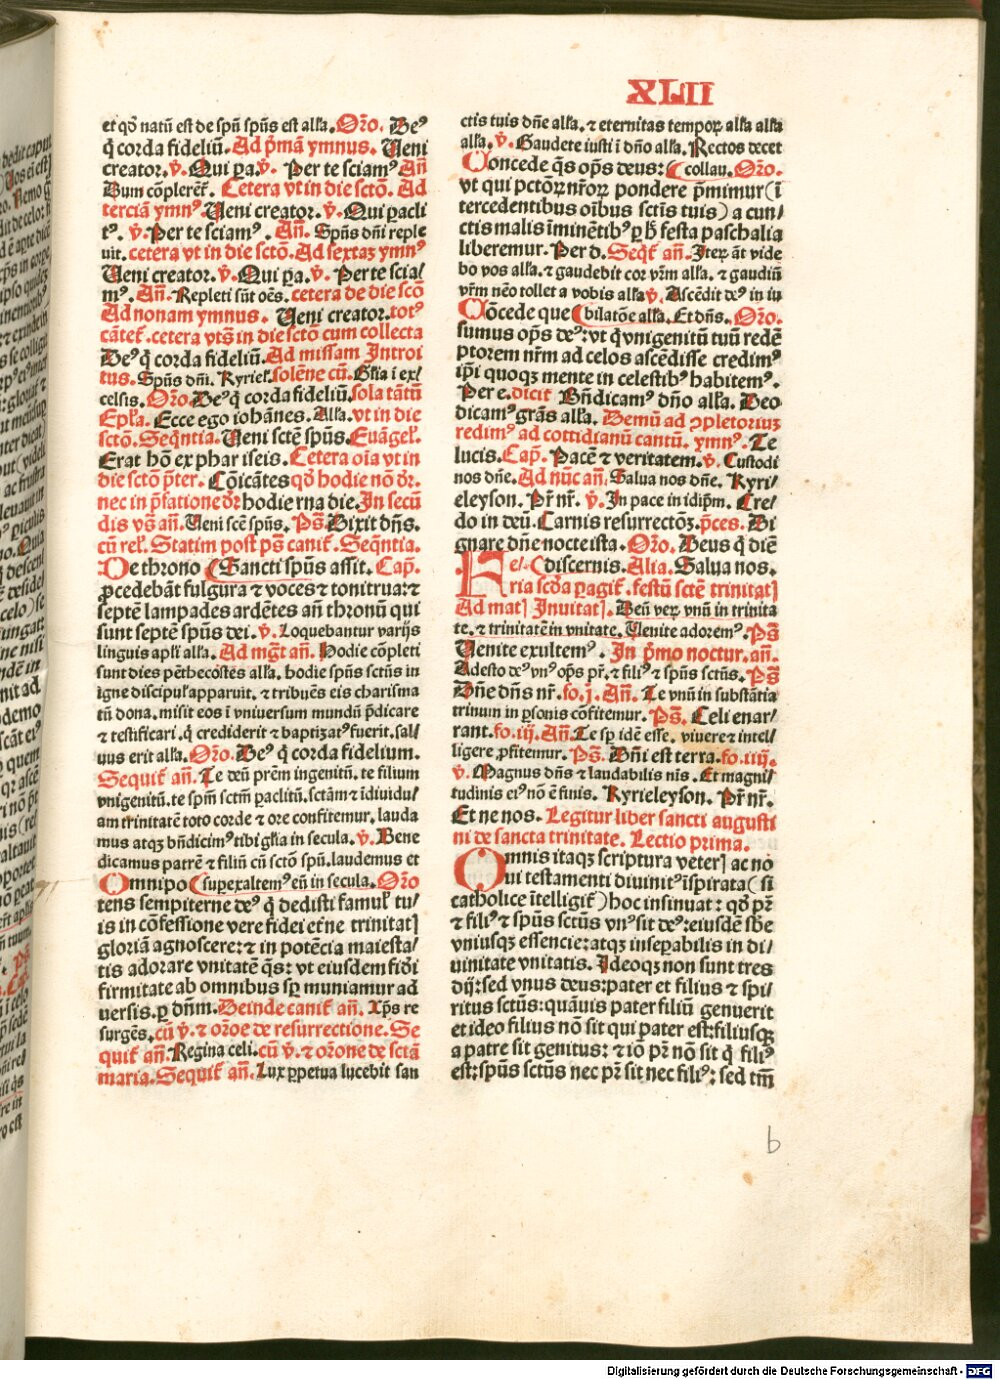 XLII
et qđ natū est de spū spūs est alľa. Oŕo. Deꝰ
q̄ corda fideliū. Ad p̄mā ymnus. Ueni
creator. v̄. Qui pa. v̄. Per te sciamꝰ An̄
Dum cōplerēt̃. Cetera vt in die sctō. Ad
terciā ymnꝰ Ueni creator. v̄. Qui pacli
tꝰ. v̄. Per te sciamꝰ. An̄. Spūs dn̄i reple
uit. cetera vt in die sctō. Ad sextaꝫ ymnꝰ
Ueni creator. v̄. Qui pa. v̄. Per te scia/
mꝰ. An̄. Repleti sūt oēs. cetera de die scō
Ad nonam ymnus. Ueni creator. totꝰ
cātet̃. cetera vts̄ in die sctō cum collecta
Deꝰ q̄ corda fideliū. Ad missam Introi
tus. Spūs dn̄i. Kyriel̃. solēne cū. Gl̃ia i ex/
celsis. Oŕo. Deꝰ q̄ corda fideliū. sola tātū
Epľa. Ecce ego iohānes. Alľa. vt in die
sctō. Seq̄ntia. Ueni sctē spūs. Euāgel̃.
Erat hō ex phariseis. Cetera oīa vt in
die sctō p̄ter. Cōicātes qđ hodie nō dr̄.
nec in p̄fatione dr̄ hodierna die. In secū
dis vs̄ an̄. Ueni scē spūs. Ps̄. Dixit dn̄s.
cū rel̃. Statim post ps̄ canit̃. Seq̄ntia.
De throno (Sancti spūs assit. Cap̄.
ꝓcedebāt fulgura ⁊ voces ⁊ tonitrua: ⁊
septē lampades ardētes an̄ thronū qui
sunt septē spūs dei. v̄. Loquebantur varijs
linguis apľi alľa. Ad mḡt an̄. Hodie cōpleti
sunt dies pēthecostes alľa. hodie spūs sctūs in
igne discipul̃ apparuit. ⁊ tribuēs eis charisma
tū dona. misit eos ī vniversum mundū p̄dicare
⁊ testificari. q̄ crediderit ⁊ baptizatꝰ fuerit. sal/
uus erit alľa. Oŕo. Deꝰ q̄ corda fidelium.
Sequit̃ an̄. Te deū prēm ingenitū. te filium
vnigenitū. te spm̄ sctm̄ paclitū. sctām ⁊ īdiuidu/
am trinitatē toto corde ⁊ ore confitemur. lauda
mus atqꝫ bn̄dicimꝰ tibi gľia in secula. v̄. Bene
dicamus patrē ⁊ filiū cū sctō spū. laudemus et
Omnipo (supexaltemꝰ eū in secula. Oŕo
tens sempiterne deꝰ q̄ dedisti famul̃ tu/
is in cōfessione vere fidei etn̄e trinitat̃
gloriā agnoscere: ⁊ in potēcia maiesta/
tis adorare vnitatē q̄s: vt eiusdem fidi
firmitate ab omnibus sp̄ muniamur ad
uersis. ꝑ dn̄m. Deinde canit̃ an̄. Xp̄s re
surgēs. cū v̄. ⁊ oŕoe de resurrectione. Se
quit̃ an̄. Regina celi. cū v̄. ⁊ oŕone de sctā
maria. Sequit̃ an̄. Lux ꝑpetua lucebit san
ctis tuis dn̄e alľa. ⁊ eternitas tempoꝝ alľa alľa
alľa. v̄. Gaudete iusti ī dn̄o alľa. Rectos decet
Concede q̄s op̄s deus: (collau. Oŕo.
vt qui pctōꝝ nr̄oꝝ pondere p̄mimur (ī
tercedentibus oībus sctīs tuis) a cun/
ctis malis iminētibꝰ ꝑ h̄ festa paschalia
liberemur. Per d. Seqt̃ an̄. Iteꝝ āt vide
bo vos alľa. ⁊ gaudebit cor vr̄m alľa. ⁊ gaudiū
vr̄m nēo tollet a vobis alľa v̄. Ascēdit deꝰ in iu
Cōcede que (bilatōe alľa. Et dn̄s. Oŕo.
sumus op̄s deꝰ: vt q̄ vnigenitū tuū redē
ptorem nr̄m ad celos ascēdisse credimꝰ
ip̄i quoqꝫ mente in celestibꝰ habitemꝰ.
Per e. dicit̃ Bn̄dicamꝰ dn̄o alľa. Deo
dicamꝰ grās alľa. Demū ad ꝯpletoriuꝫ
redimꝰ ad cottidianū cantū. ymnꝰ. Te
lucis. Cap̄. Pacē ⁊ veritatem. v̄. Custodi
nos dn̄e. Ad nūc an̄. Salua nos dn̄e. Kyri/
eleyson. Pr̄ nr̄. v̄. In pace in idip̄m. Cre/
do in deū. Carnis resurrectōꝫ. p̄ces. Di
gnare dn̄e nocte ista. Oŕo. Deus q̄ diē
Fe/ (discernis. Alia. Salua nos.
ria scđa pagit̃. festū sctē trinitat̃
Ad mat̃ Inuitat̃. Deū veꝝ vnū in trinita
te. ⁊ trinitatē in vnitate. Uenite adoremꝰ. Ps̄
Uenite exultemꝰ. In p̄mo noctur. an̄.
Adesto deꝰ vnꝰ op̄s pr̄. ⁊ filiꝰ ⁊ spūs sctūs. Ps̄
Dn̄e dn̄s nr̄. fo. j. An̄. Te vnū in substātia
trinum in ꝑsonis cōfitemur. Ps̄. Celi enar/
rant. fo. iij. An̄. Te sp̄ idē esse. viuere ⁊ intel/
ligere ꝓfitemur. Ps̄. Dn̄i est terra. fo. iiij.
v̄. Magnus dn̄s ⁊ laudabilis nis. Et magni/
tudinis eiꝰ nō ē finis. Kyrieleyson. Pr̄ nr̄.
Et ne nos. Legitur liber sancti augusti
ni de sancta trinitate. Lectio prima.
Omnis itaqꝫ scriptura veter̃ ac no
ui testamenti diuinitꝰ īspirata (si
catholice ītelligit̃) hoc insinuat: qđ pr̄
⁊ filiꝰ ⁊ spūs sctūs vnꝰ sit deꝰ: eiusdē sb̄e
vniusqꝫ essencie: atqꝫ inseꝑabilis in di/
uinitate vnitatis. Ideoqꝫ non sunt tres
dij: sed vnus deus: pater et filius ⁊ spi/
ritus sctūs: quāuis pater filiū genuerit
et ideo filius nō sit qui pater est: filiusqꝫ
a patre sit genitus: ⁊ iō pr̄ nō sit q̄ filiꝰ
est: spūs sctūs nec pr̄ sit nec filiꝰ: sed tm̄
b
Digitalisierung gefördert durch die Deutsche Forschungsgemeinschaft - DFG